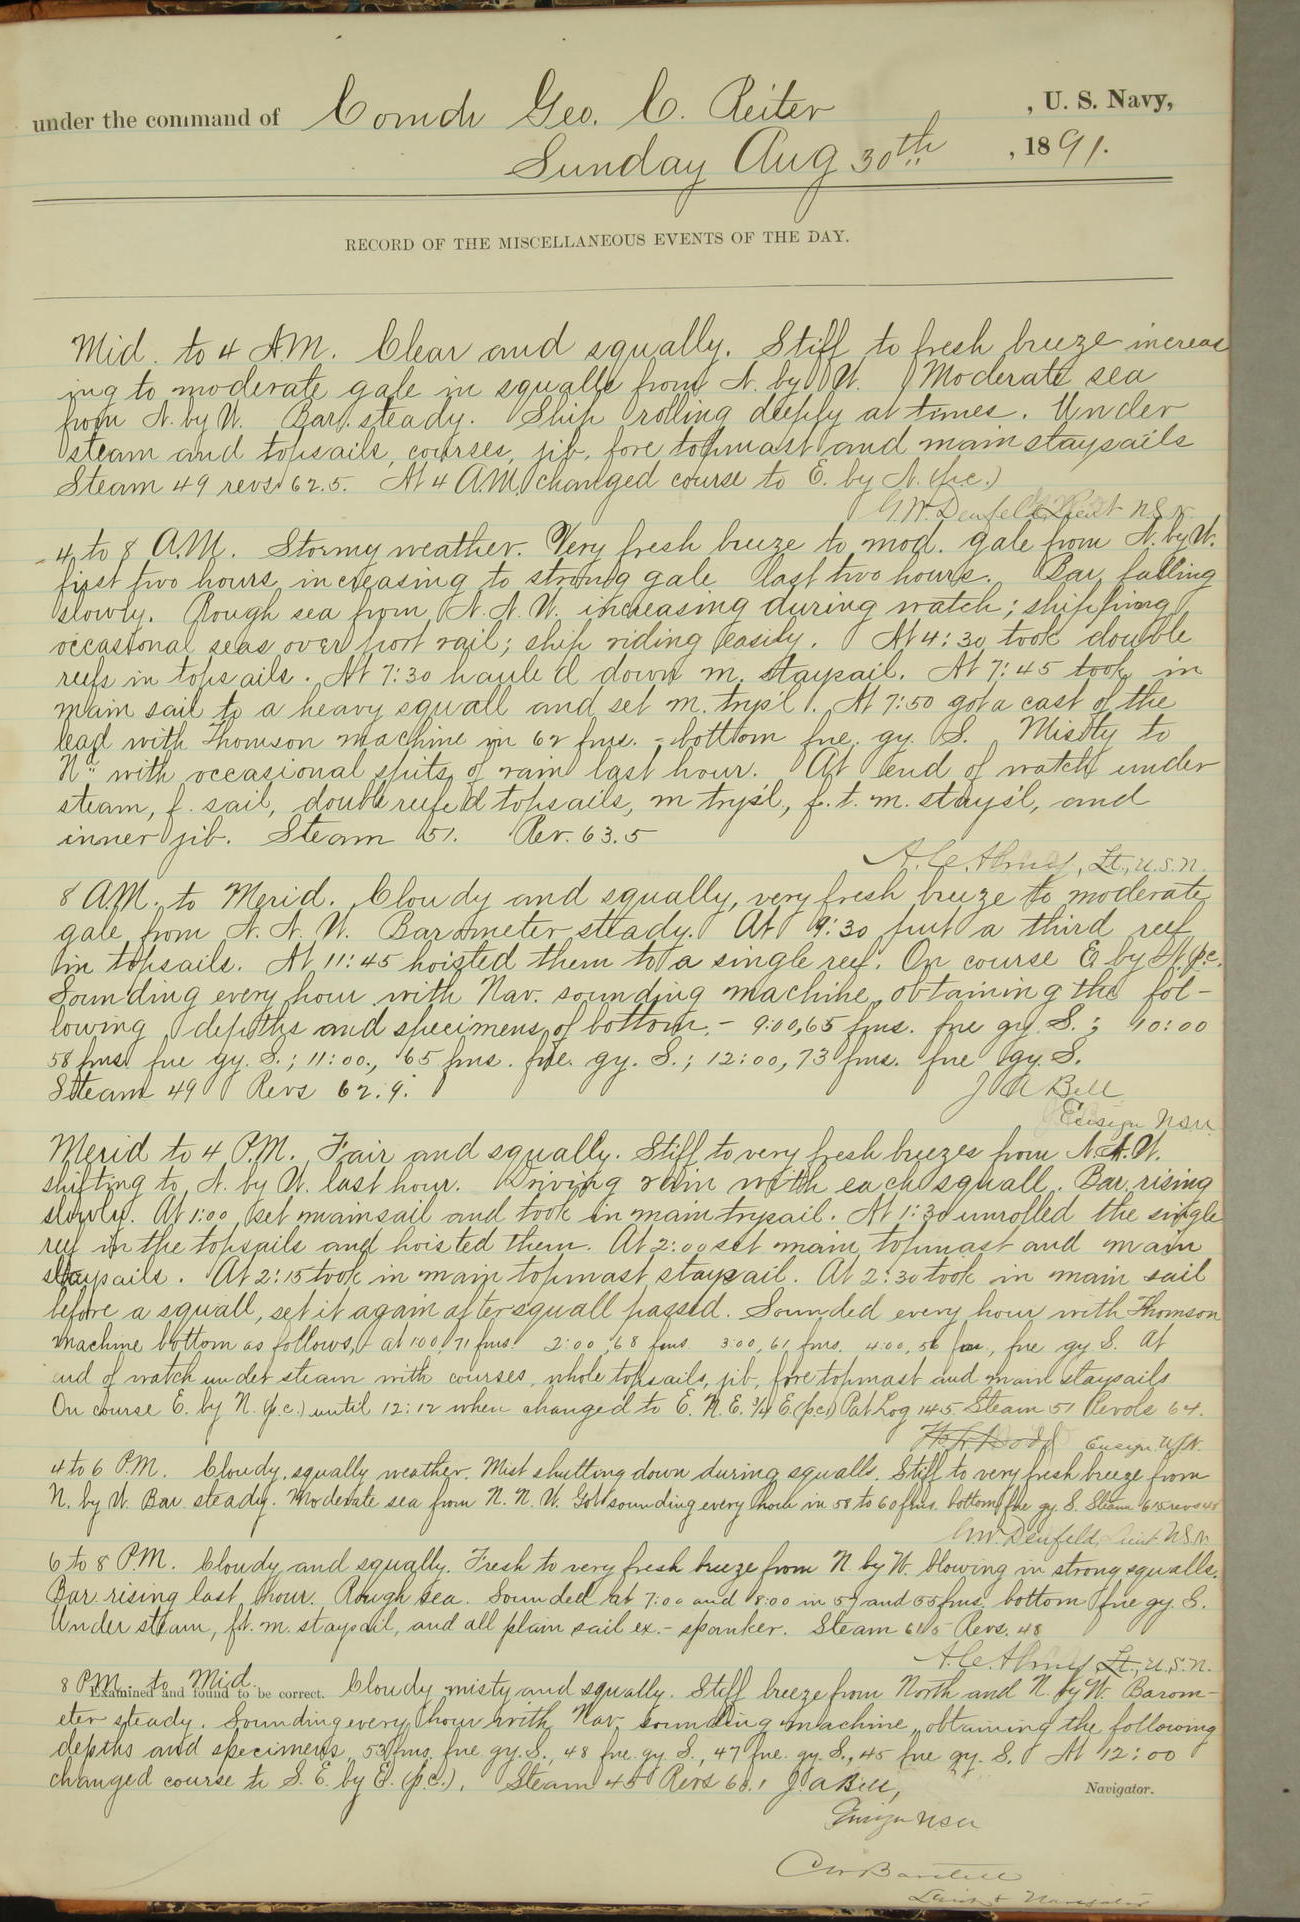 under the command of Comdr Geo. C. Reiter , U. S. Navy,
Sunday Aug 30th , 1891.
RECORD OF THE MISCELLANEOUS EVENTS OF THE DAY.
Mid. to 4 A.M. Clear and squally. Stiff to fresh breeze increas
ing to moderate gale in squalls from N. by W. Moderate sea
from N. by W. Bar. steady. Ship rolling deeply at times. Under
steam and topsails, courses, jib, fore topmast and main staysails
Steam 49 revs 62.5. At 4 A.M. changed course to E. by N. (p.c.)
G.W. Denfeld, Lieut U.S.N.
4 to 8 A.M. Stormy weather. Very fresh breeze to mod. gale from N. by W.
first two hours, increasing to strong gale last two hours. Bar. falling
slowly. Rough sea from N.N.W. increasing during watch; shipping
occasional seas over port rail; ship riding easily. At 4:30 took double
reefs in topsails. At 7:30 haule'd down m. staysail. At 7:45 took in
main sail to a heavy squall and set m. trys'l. At 7:50 got a cast of the
lead with Thomson machine in 62 fms. - bottom fne. gy. S. Misty to
Nd. with occasional spits of rain last hour. At end of watch under
steam, f. sail, double reefe'd topsails, m trys'l, f. t. m. stays'l, and
inner jib. Steam 51. Rev. 63.5
Lt., U.S.N.
8 A.M. to Merid. Cloudy and squally, very fresh breeze to moderate
gale from N. N. W. Barometer steady. At 9:30 put a third reef
in topsails. At 11:45 hoisted them to a single reef. On course E by N. p.c.
Sounding every hour with Nav. sounding machine, obtaining the fol-
lowing depths and specimens of bottom, - 9:00, 65 fms. fne gy. S.; 10:00
58 fms. fne gy. S.; 11:00., 65 fms. fne. gy. S.; 12:00, 73 fms. fne gy. S.
Steam 49 Revs 62.9.
J A Bell
Ensign USN
Merid to 4 P.M. Fair and squally. Stiff to very fresh breezes from N.N.W.
shifting to N. by W. last hour. Driving rain with each squall. Bar. rising
slowly. At 1:00 set mainsail and took in main trysail. At 1:30 unrolled the single
reef in the topsails and hoisted them. At 2:00 set main topmast and main
staysails. At 2:15 took in main topmast staysail. At 2:30 took in main sail
before a squall, set it again after squall passed. Sounded every hour with Thomson
machine bottom as follows, at 1:00, 71 fms. 2:00, 68 fms 3:00, 61, fms. 4:00, 56 fms., fne gy S. At
end of watch under steam with courses, whole topsails, jib, fore topmast and main staysails
On course E. by N. (p.c.) until 12:12 when changed to E. N. E. 3/4 E. (p.c.) Pat Log 14.5. Steam 51 Revols 64.
Ensign U.S.N.
4 to 6 P.M. Cloudy, squally weather. Mist shutting down during squalls. Stiff to very fresh breeze from
N. by W. Bar. steady. Moderate sea from N. N. W. Got sounding every hour in 58 to 60 fms. bottom fne gy. S. Steam 61.5 revs 48
G.W. Denfeld, Lieut U.S.N.
6 to 8 P.M. Cloudy and squally. Fresh to very fresh breeze from N. by W. blowing in strong squalls.
Bar. rising last hour. Rough sea. Sounded at 7:00 and 8:00 in 57 and 55 fms. bottom fne gy. S.
Under steam, f.t. m. staysail, and all plain sail ex. - spanker. Steam 61.5 Revs. 48
Lt., U.S.N.
8 P.M. to Mid. Cloudy misty and squally. Stiff breeze from North and N. by W. Barom-
Examined and found to be correct.
eter steady. Sounding every hour with Nav. sounding machine, obtaining the following
depths and specimens, 53 fms. fne. gy. S., 48 fne. gy S., 47 fne. gy. S., 45 fne gy. S. At 12:00
changed course to S. E. by E. (p.c.). Steam 45 Revs 60.1 J. A Bell,
Navigator.
Ensign USN
Lieut & Navigator